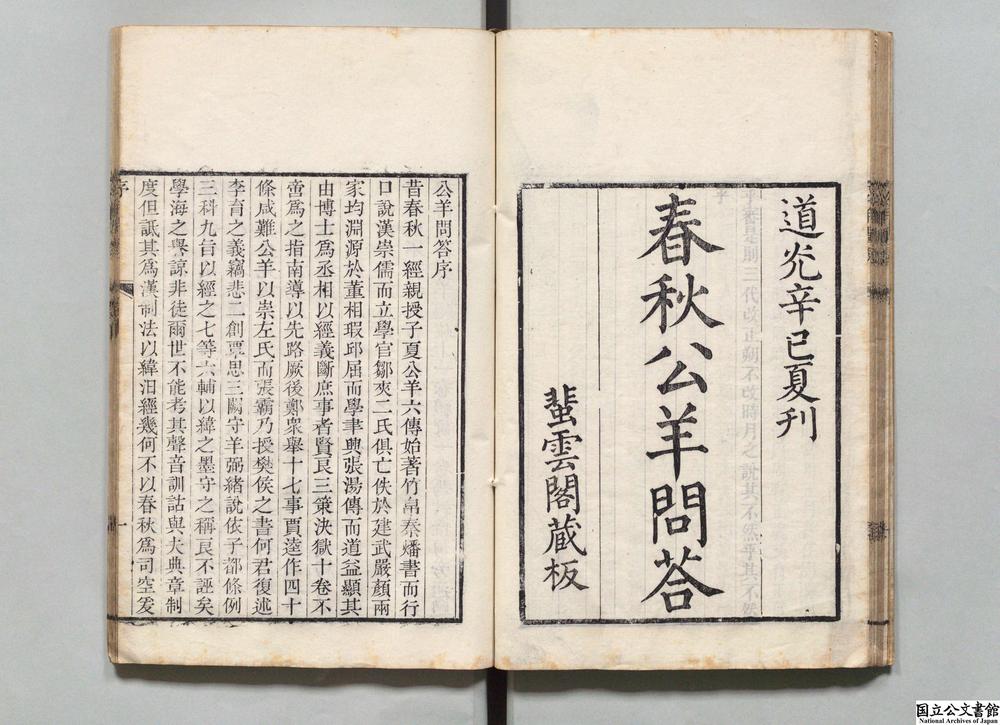 道光辛巳夏刊
春秋公羊問答
蜚雲閣蔵板
公羊問答序
昔春秋一經親授子夏公羊六傳始著竹帛秦燔書而行
口說漢崇儒而立學官鄒夾二氏俱亡佚於建武嚴顏兩
家均淵源於董相瑕邱屈而學聿興張湯傳而道益顯其
由博士爲丞相以經義斷庶事者賢良三策決獄十卷不
啻爲之指南導以先路厥後鄭衆舉十七事賈逵作四十
條咸難公羊以崇左氏而張霸乃授樊侯之書何君復述
李育之義竊悲二創覃思三闕守羊弼緒說依子都條例
三科九旨以經之七等六輔以緯之墨守之稱良不誣矣
學海之譽諒非徒爾世不能考其聲音訓詁與大典章制
度但詆其爲漢制法以緯汨經幾何不以春秋爲司空爰
序
一
国立公文書館
National Archives of Japan